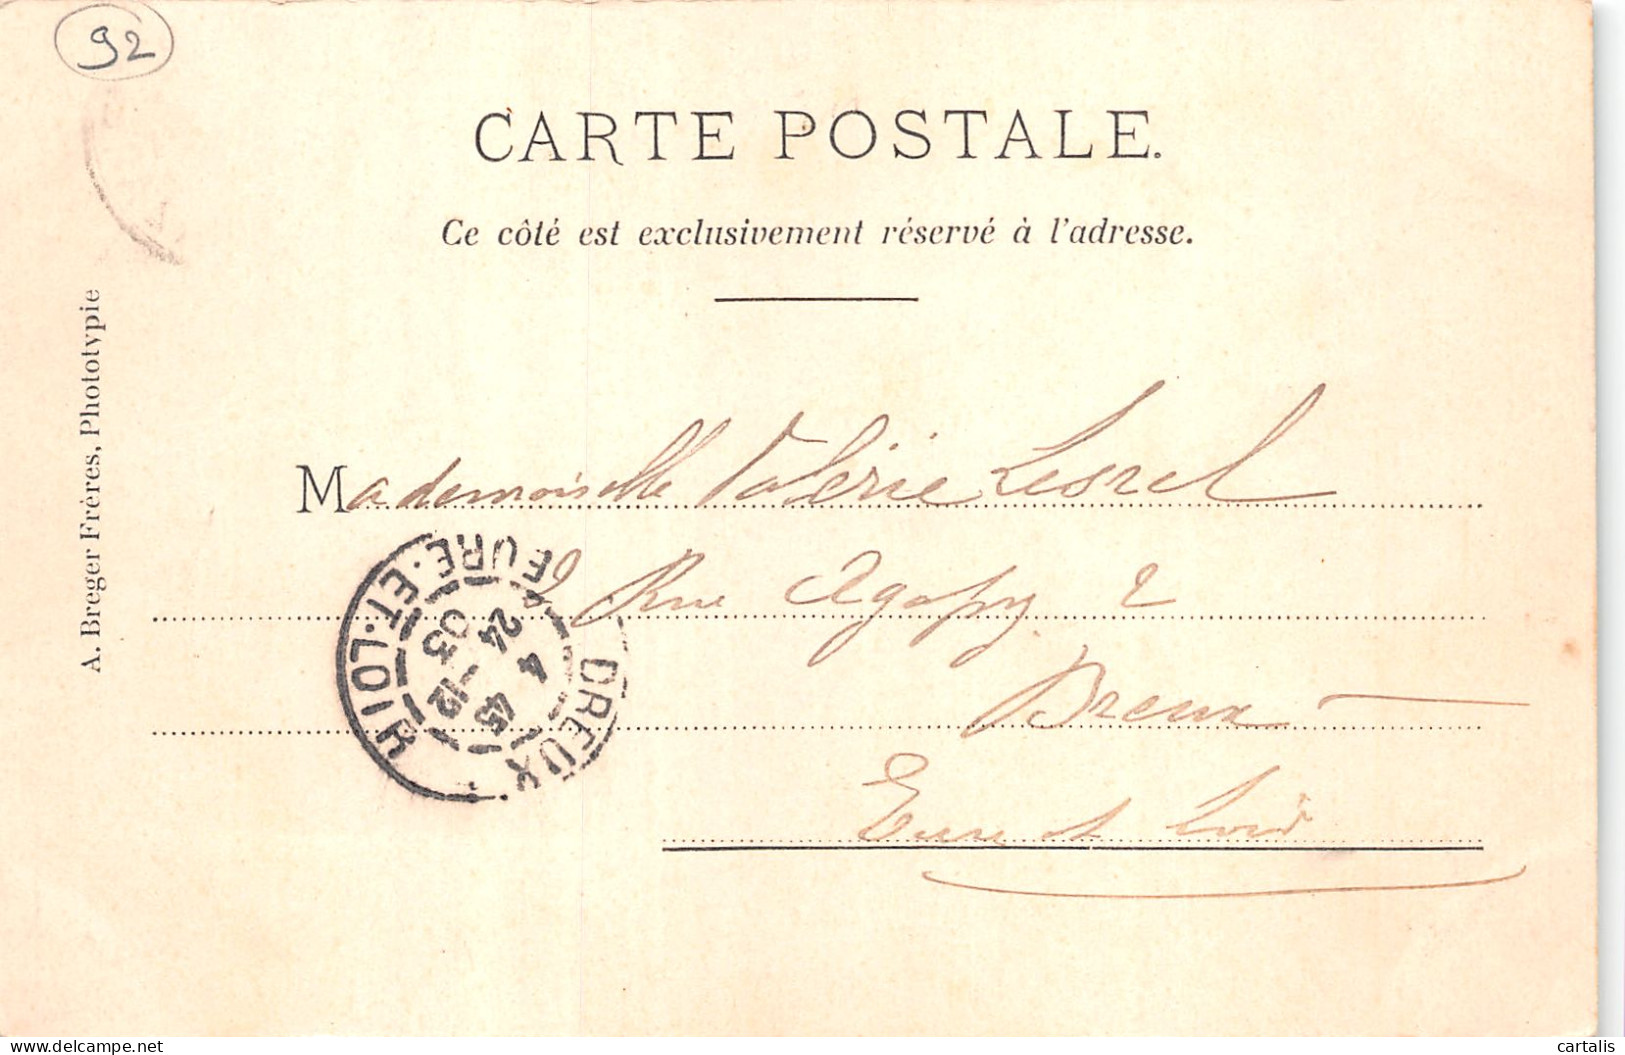 92
CARTE POSTALE.
Ce côté est exclusivement réservé à l'adresse.
A. Breger Frères, Phototypie
Mademoiselle Valérie Lesrel
2 Rue Agapy 2
Dreux
Eure et Loir
DREUX
EURE-ET-LOIR
12 45
24 4
03
delcampe.net
cartalis